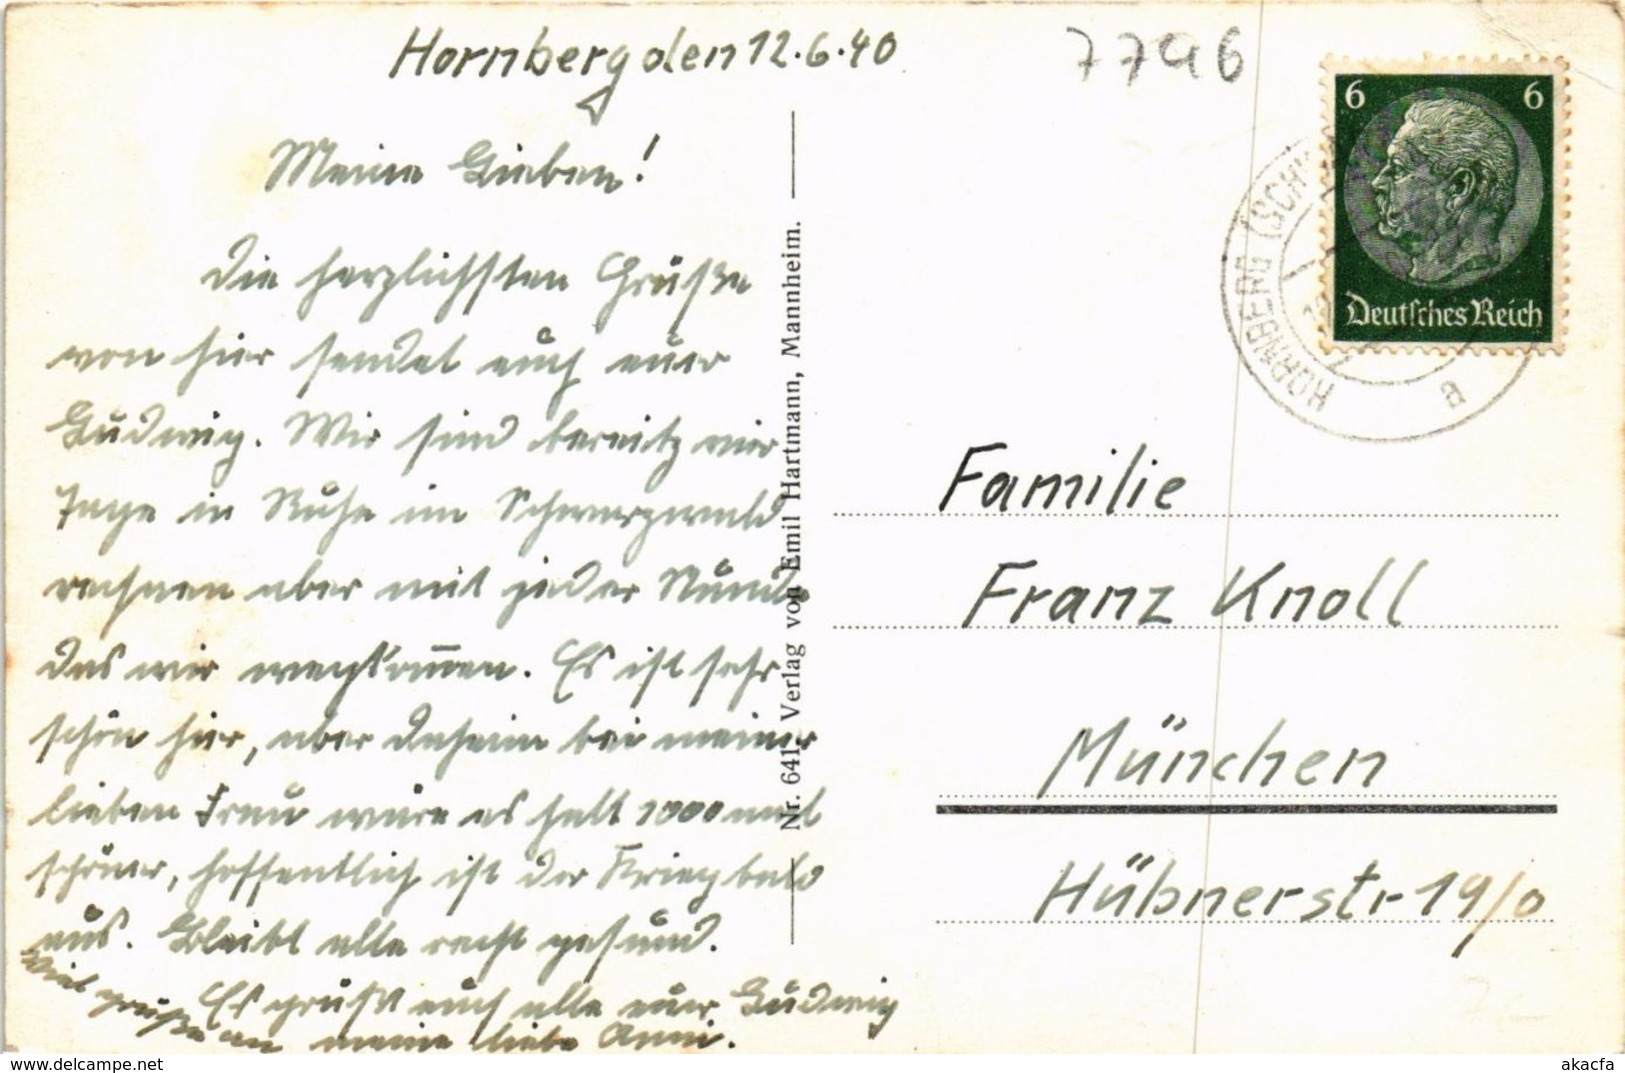 Hornberg den 12.6.40
7796
Meine Lieben!
Die herzlichsten Grüße
von hier sendet euch euer
Ludwig. Wir sind bereits vier
Tage in Ruhe im Schwarzwald
rechnen aber mit jeder Stunde
das wir wegkommen. Es ist sehr
schön hier, aber daheim bei meiner
lieben Frau wäre es halt 1000 mal
schöner, hoffentlich ist der Krieg bald
aus. Bleibt alle recht gesund.
Es grüßt euch alle euer Ludwig
Viel grüße an meine liebe Anni.
Nr. 641. Verlag von Emil Hartmann, Mannheim.
6 6
Deutsches Reich
HORNBERG (SCHW
a
Familie
Franz Knoll
München
Hübnerstr. 19/0
akacfa